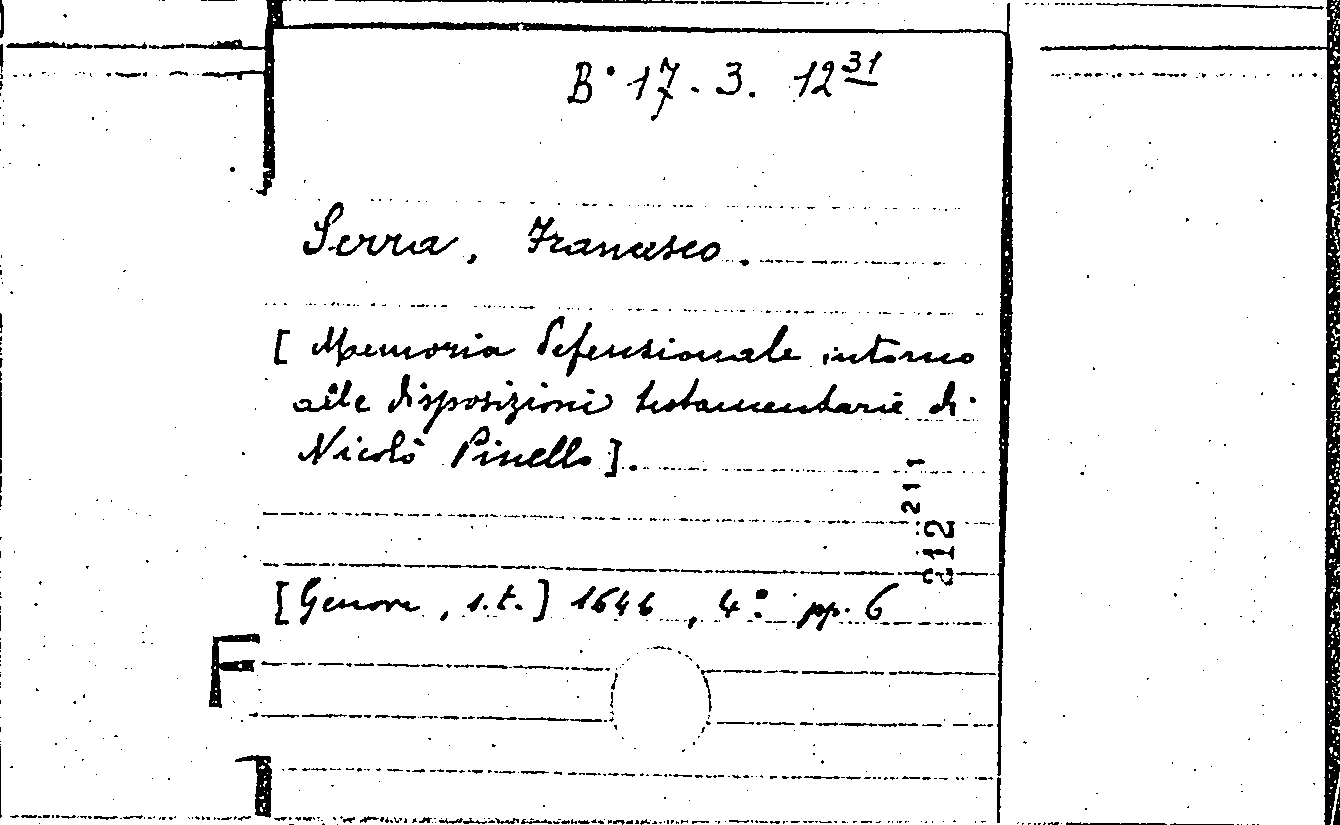 B. 17. 3. 12 31
Serra, Francesco.
[ Memoria defensionale intorno
alle disposizioni testamentarie di
Nicolò Pinello ].
211
212
[Genova, s.t.] 1646, 4º. pp. 6
F